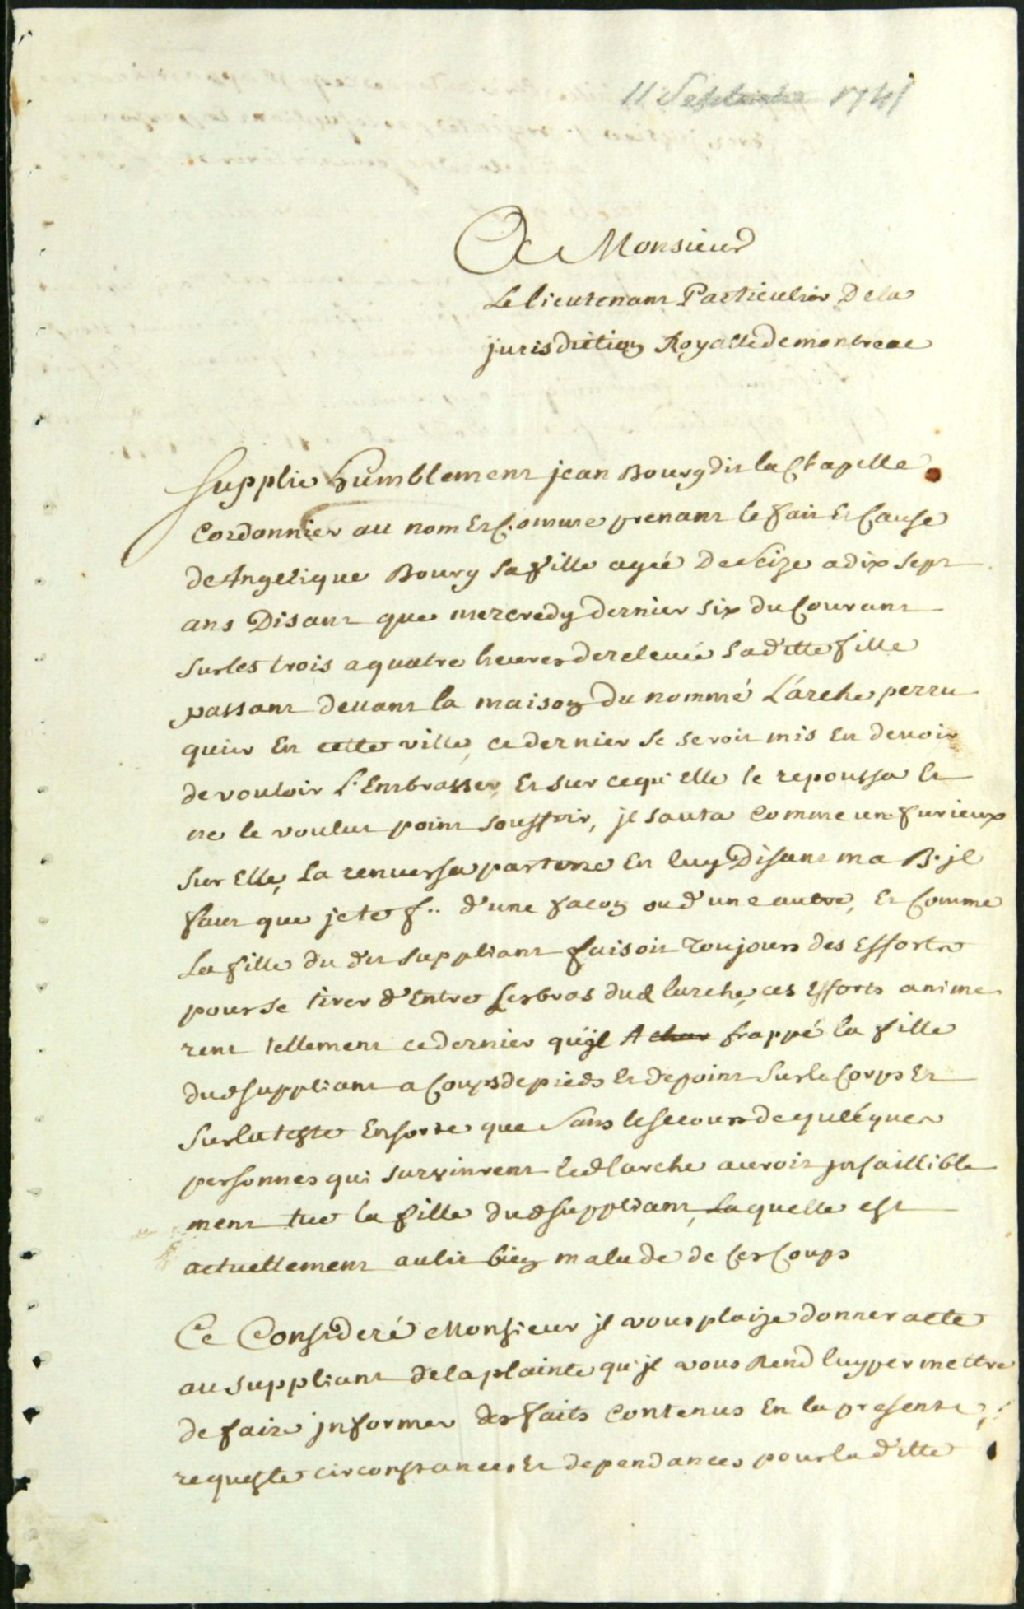 11 Septembre 1741
A Monsieur
Le lieutenant Particulier De la
jurisdiction Royalle de montreal
Supplie humblement jean Bourg dit la Chapelle
Cordonnier au nom Et Comme prenant le fait Et Cause
de Angelique Bourg sa fille agée De seize a dix sept
ans Disant que mercredy dernier six du Courant
sur les trois a quatre heures de relevée sa ditte fille
passant devant la maison du nommé L'arche perru
quier En cette ville, ce dernier se seroit mis En devoir
de vouloir L'Embrasser, Et sur ce qu'elle le repoussa Et
ne le voulut point souffrir, jl sauta Comme un furieux
sur Elle, La renversa par terre En luy Disant ma B. jl
faut que je te f.. d'une facon ou d'une autre, Et Comme
La fille du dit suppliant faisoit Toujours des Efforts
pour se tirer d'Entre Les bras dud larche, ces Efforts anime
rent tellement ce dernier qu'jl A frappé la fille
dud suppliant a Coups de pieds Et de poins sur le Corps Et
sur la teste En sorte que sans le secours de quelques
personnes qui survinrent led larche auroit jnfaillible
ment tué la fille dud suppliant, Laquelle est
actuellement au lit bien malade de Ces Coups
Ce Consideré Monsieur jl vous plaize donner acte
au suppliant de la plainte qu'jl vous Rend luy permettre
de faire jnformer des faits Contenus En la presente
requeste circonstances Et dependances pour la ditte